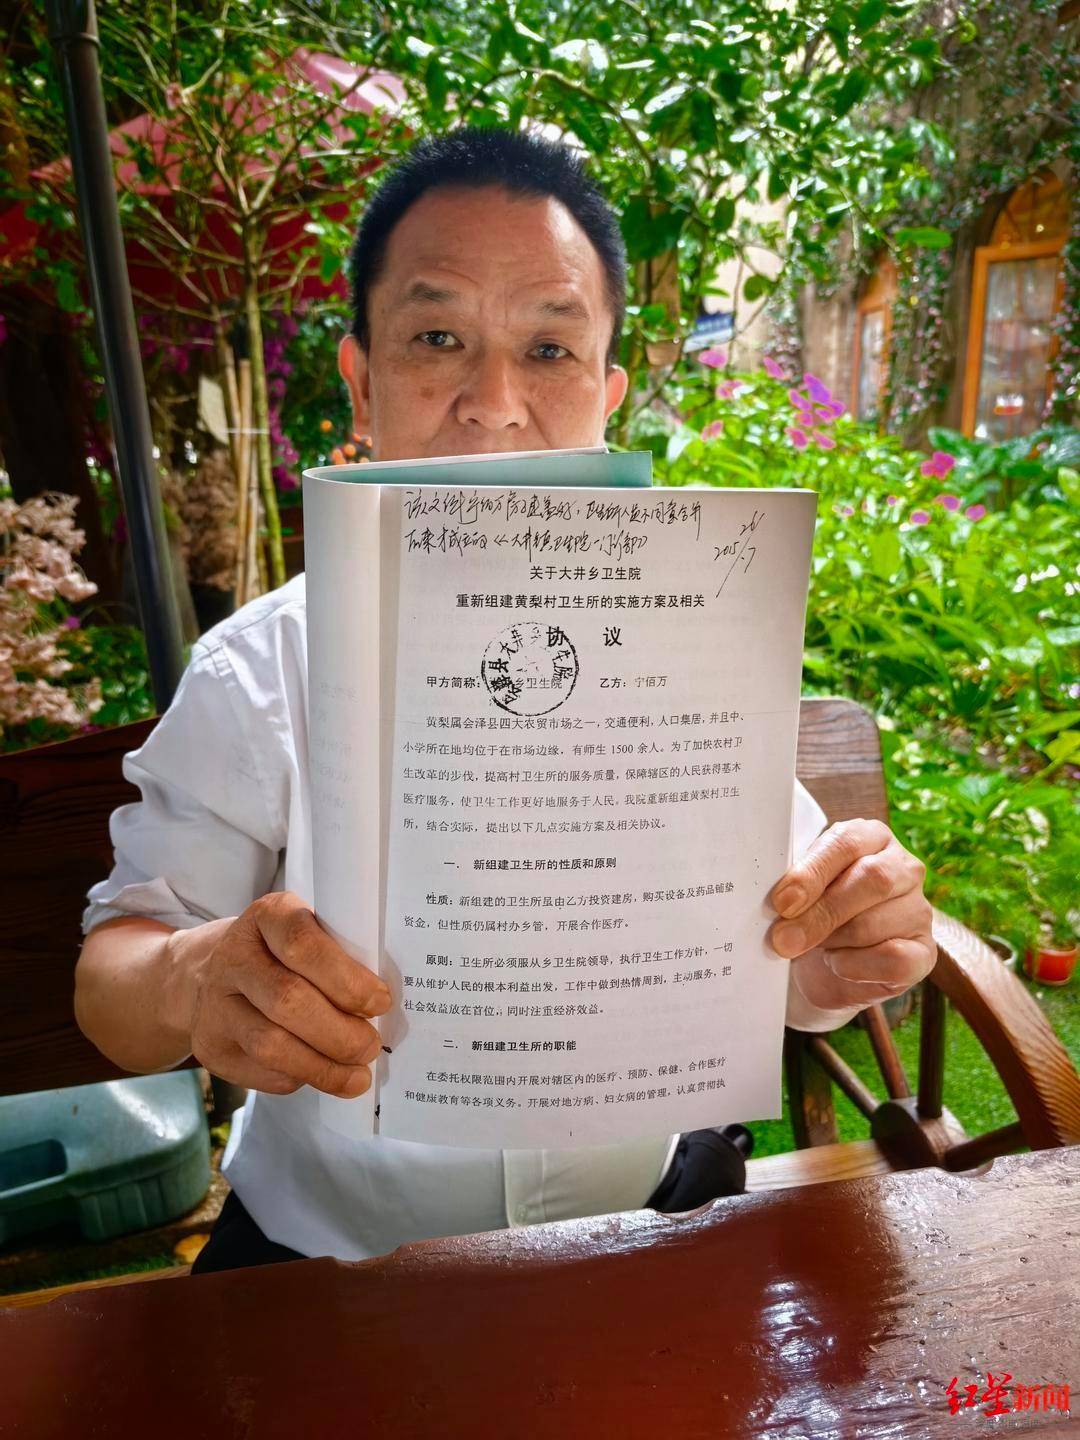 关于大井乡卫生院
重新组建黄梨村卫生所的实施方案及相关
协 议
甲方简称：乡卫生院 乙方：宁佰万
黄梨属会泽县四大农贸市场之一，交通便利，人口集居，并且中、
小学所在地均位于在市场边缘，有师生 1500 余人。为了加快农村卫
生改革的步伐，提高村卫生所的服务质量，保障辖区的人民获得基本
医疗服务，使卫生工作更好地服务于人民。我院重新组建黄梨村卫生
所，结合实际，提出以下几点实施方案及相关协议。
一． 新组建卫生所的性质和原则
性质：新组建的卫生所虽由乙方投资建房，购买设备及药品铺垫
资金，但性质仍属村办乡管，开展合作医疗。
原则：卫生所必须服从乡卫生院领导，执行卫生工作方针，一切
要从维护人民的根本利益出发，工作中做到热情周到，主动服务，把
社会效益放在首位，同时注重经济效益。
二． 新组建卫生所的职能
在委托权限范围内开展对辖区内的医疗、预防、保健、合作医疗
和健康教育等各项义务。开展对地方病、妇女病的管理，认真贯彻执
1
红星新闻